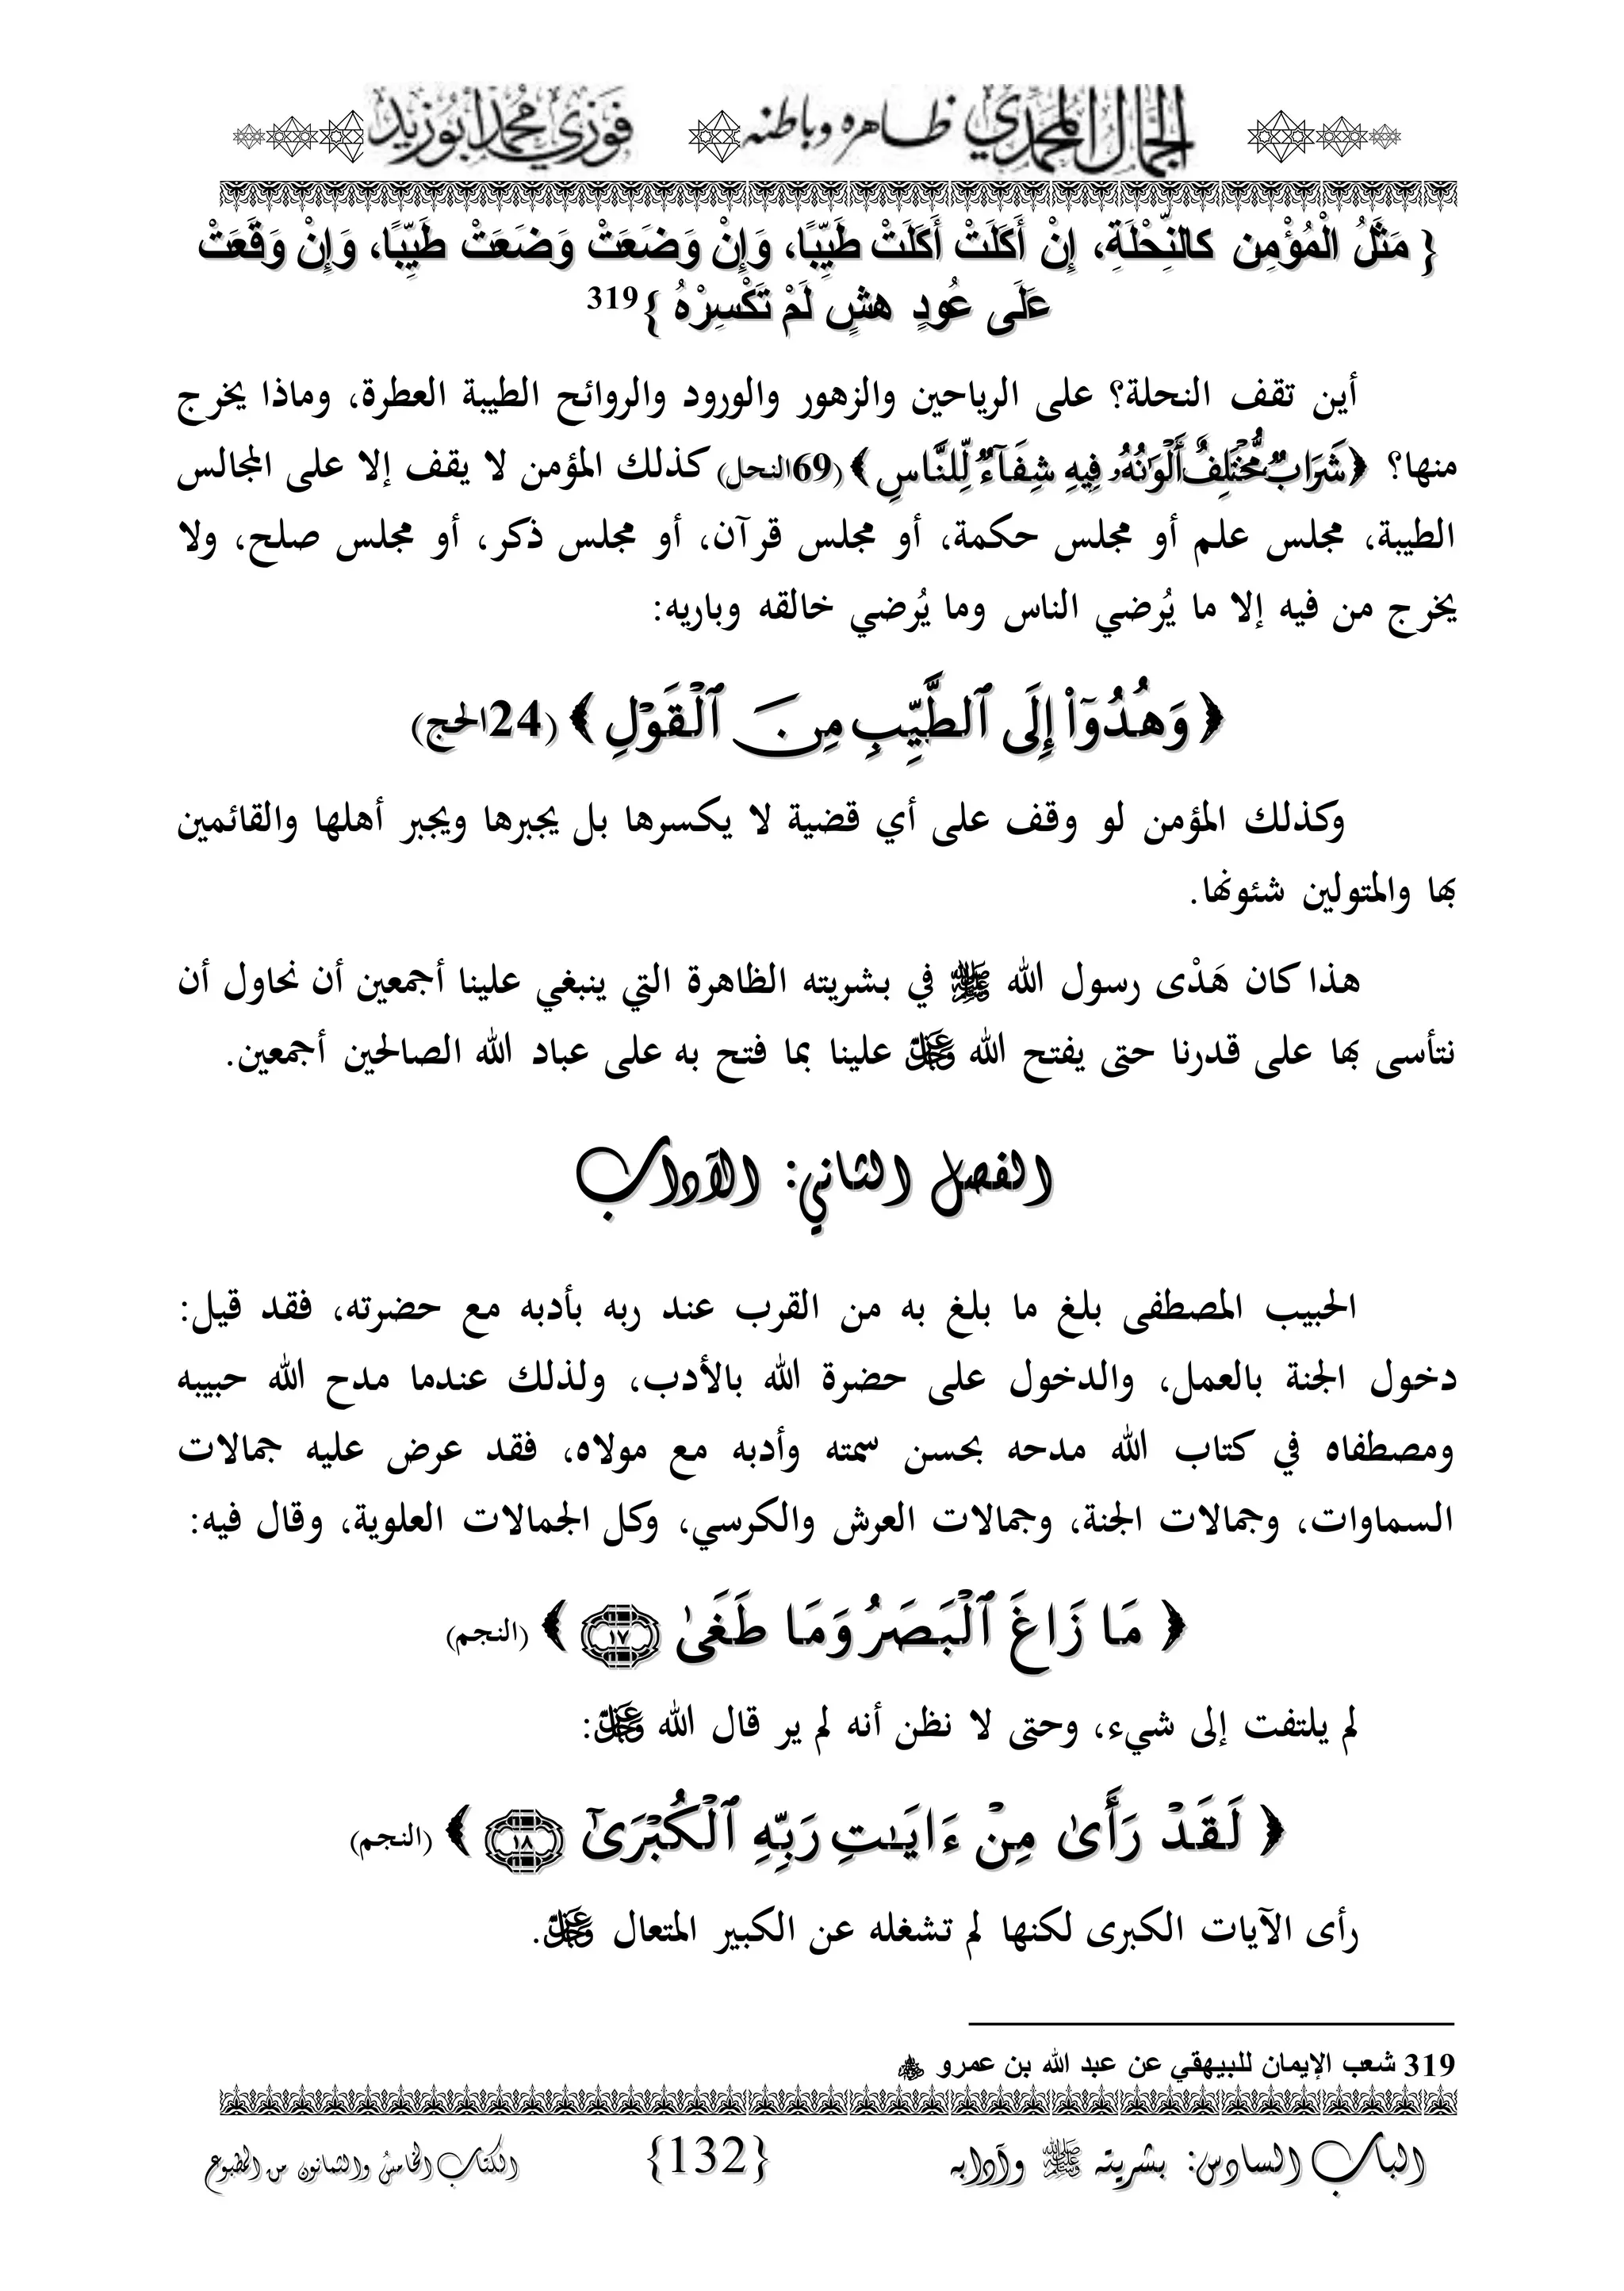 الجمال المحمدي ظاهره وباطنه فوزي محمد أبوزيد
{ مَثَلُ الْمُؤْمِن كالنِّحْلَةِ، إِنْ أَكَلَتْ أَكَلَتْ طَيِّبًا، وَإِنْ وَضَعَتْ وَضَعَتْ طَيِّبًا، وَإِنْ وَقَعَتْ
عَلَى عُودٍ هشٍ لَمْ تَكْسِرْهُ }319
أين تقف النحلة؟ على الرياحين والزهور والورود والروائح الطيبة العطرة، وماذا يخرج
منها؟ ﴿ شَرَابٌ مُّخْتَلِفٌ أَلْوَٰنُهُۥ فِيهِ شِفَآءٌ لِّلنَّاسِ ﴾ (69النحل) كذلك المؤمن لا يقف إلا على المجالس
الطيبة، مجلس علم أو مجلس حكمة، أو مجلس قرآن، أو مجلس ذكر، أو مجلس صلح، ولا
يخرج من فيه إلا ما يُرضي الناس وما يُرضي خالقه وباريه:
﴿ وَهُدُوٓا۟ إِلَى ٱلطَّيِّبِ مِنَ ٱلْقَوْلِ ﴾ (24الحج)
وكذلك المؤمن لو وقف على أي قضية لا يكسرها بل يجبرها ويجبر أهلها والقائمين
بها والمتولين شئونها.
هذا كان هَدْى رسول الله ﷺ في بشريته الظاهرة التي ينبغي علينا أجمعين أن نحاول أن
نتأسى بها على قدرنا حتى يفتح الله عز وجل علينا بما فتح به على عباد الله الصالحين أجمعين.
الفصل الثاني: الآداب
الحبيب المصطفى بلغ ما بلغ به من القرب عند ربه بأدبه مع حضرته، فقد قيل:
دخول الجنة بالعمل، والدخول على حضرة الله بالأدب، ولذلك عندما مدح الله حبيبه
ومصطفاه في كتاب الله مدحه بحسن سمته وأدبه مع مولاه، فقد عرض عليه جمالات
السماوات، وجمالات الجنة، وجمالات العرش والكرسي، وكل الجمالات العلوية، وقال فيه:
﴿ مَا زَاغَ ٱلْبَصَرُ وَمَا طَغَىٰ ١٧ ﴾ (النجم)
لم يلتفت إلى شيء، وحتى لا نظن أنه لم ير قال الله عز وجل:
﴿ لَقَدْ رَأَىٰ مِنْ ءَايَـٰتِ رَبِّهِ ٱلْكُبْرَىٰٓ ١٨ ﴾ (النجم)
رأى الآيات الكبرى لكنها لم تشغله عن الكبير المتعال عز وجل.
319 شعب الإيمان للبيهقي عن عبد الله بن عمرو رضي الله عنه
الباب السادس: بشريته ﷺ وآدابه {132} الكتاب الخامس والثمانون من المطبوع